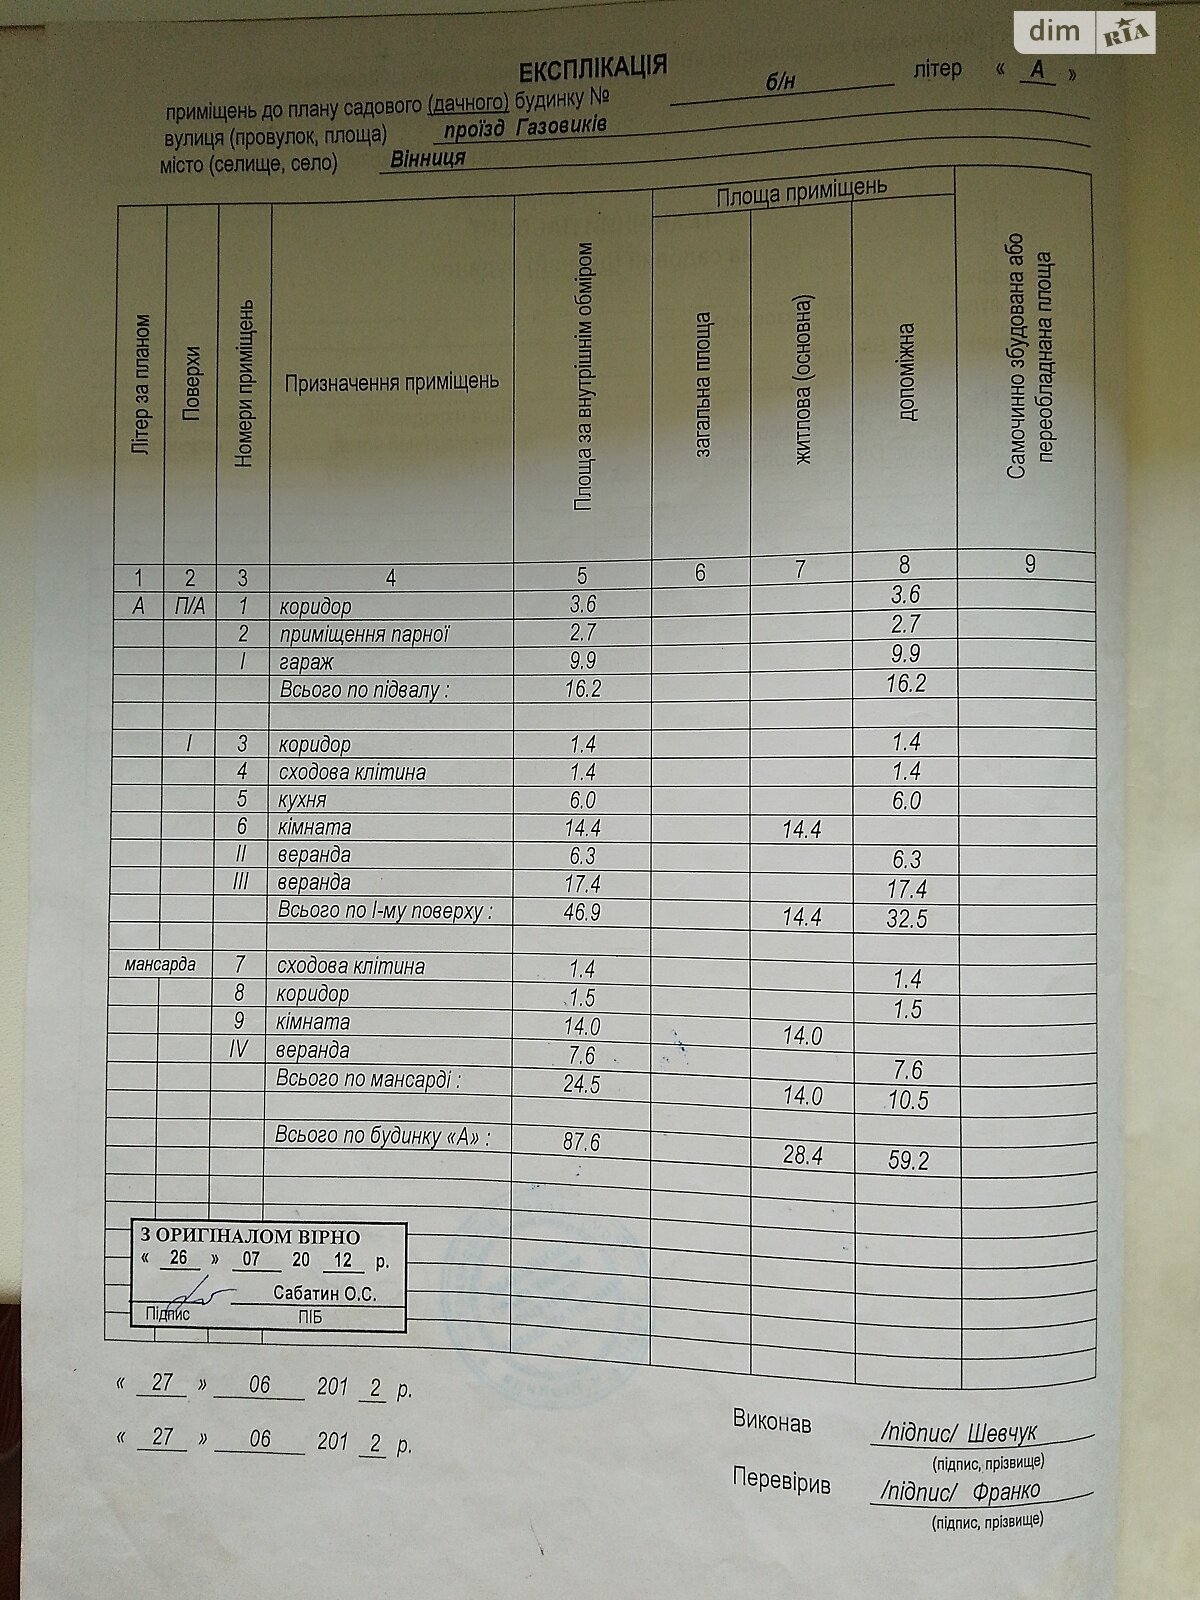 dim RIA
ЕКСПЛІКАЦІЯ
приміщень до плану садового (дачного) будинку № б/н літер « А »
вулиця (провулок, площа) проїзд Газовиків
місто (селище, село) Вінниця
Літер за планом Поверхи Номери приміщень Призначення приміщень Площа за внутрішнім обміром Площа приміщень загальна площа житлова (основна) допоміжна Самочинно збудована або переобладнана площа
1 2 3 4 5 6 7 8 9
А П/А 1 коридор 3.6 3.6
2 приміщення парної 2.7 2.7
I гараж 9.9 9.9
Всього по підвалу : 16.2 16.2
I 3 коридор 1.4 1.4
4 сходова клітина 1.4 1.4
5 кухня 6.0 6.0
6 кімната 14.4 14.4
II веранда 6.3 6.3
III веранда 17.4 17.4
Всього по І-му поверху : 46.9 14.4 32.5
мансарда 7 сходова клітина 1.4 1.4
8 коридор 1.5 1.5
9 кімната 14.0 14.0
IV веранда 7.6 7.6
Всього по мансарді : 24.5 14.0 10.5
Всього по будинку «А» : 87.6 28.4 59.2
З ОРИГІНАЛОМ ВІРНО
« 26 » 07 20 12 р.
Сабатин О.С.
Підпис ПІБ
« 27 » 06 201 2 р.
« 27 » 06 201 2 р.
Виконав /підпис/ Шевчук
(підпис, прізвище)
Перевірив /підпис/ Франко
(підпис, прізвище)